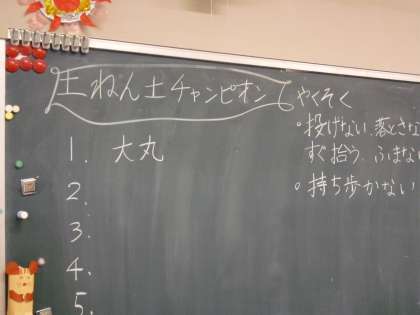 ねん土チャンピオン
やくそく
・投げない、落とさな
すぐ拾う、ふまない
・持ち歩かない
1. 大丸
2.
3.
4.
5.